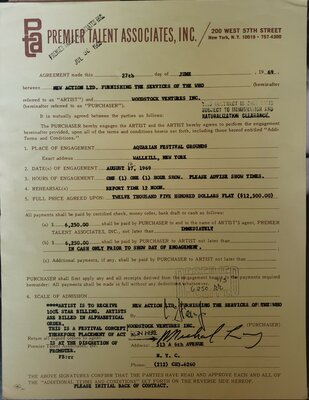 PREMIER TALENT ASSOCIATES, INC. / 200 WEST 57TH STREET
New York, N.Y. 10019 • 757-4300
PREMIER TALENT ASSOCIATES INC
AGREEMENT made this 27th day of JUNE , 1969.
between NEW ACTION LTD. FURNISHING THE SERVICES OF THE WHO (hereinafter
referred to as "ARTIST") and WOODSTOCK VENTURES INC. (hereinafter
referred to as "PURCHASER").
It is mutually agreed between the parties as follows:
SUBJECT TO IMMIGRATION AND
NATURALIZATION CLEARANCE.
The PURCHASER hereby engages the ARTIST and the ARTIST hereby agrees to perform the engagement
hereinafter provided, upon all of the terms and conditions herein set forth, including those hereof entitled "Addi-
tional Terms and Conditions."
1. PLACE OF ENGAGEMENT AQUARIAN FESTIVAL GROUNDS
Exact address WALLKILL, NEW YORK
2. DATE(S) OF ENGAGEMENT AUGUST , 1969
3. HOURS OF ENGAGEMENT ONE (1) ONE (1) HOUR SHOW. PLEASE ADVISE SHOW TIMES.
4. REHEARSAL(s) REPORT TIME 12 NOON.
5. FULL PRICE AGREED UPON: TWELVE THOUSAND FIVE HUNDRED DOLLARS FLAT ($12,500.00)
All payments shall be paid by certified check, money order, bank draft or cash as follows:
(a) $ 6,250.00 shall be paid by PURCHASER to and in the name of ARTIST'S agent, PREMIER
TALENT ASSOCIATES, INC., not later than IMMEDIATELY
(b) $ 6,250.00 shall be paid by PURCHASER to ARTIST not later than
IN CASH ONLY PRIOR TO SHOW DAY OF ENGAGEMENT.
(c) Additional payments, if any, shall be paid by PURCHASER to ARTIST not later than
PURCHASER shall first apply any and all receipts derived from the engagement to the payments required
hereunder. All payments shall be made in full without any deductions whatsoever.
6. SCALE OF ADMISSION
***ARTIST IS TO RECEIVE
100% STAR BILLING. ARTISTS
ARE BILLED IN ALPHABETICAL
ORDER.
THIS IS A FESTIVAL CONCEPT
THEREFORE PLACEMENT OF ACT
IS AT THE DISCRETION OF
PROMOTER.
FB:rr
NEW ACTION LTD. FURNISHING THE SERVICES OF THE WHO
WOODSTOCK VENTURES INC. (PURCHASER)
Return all signed copies to agent:
Premier Talent
Address: 513 A 6th AVENUE
N. Y. C.
Phone: (212)
THE ABOVE SIGNATURES CONFIRM THAT THE PARTIES HAVE READ AND APPROVE EACH AND ALL OF
THE "ADDITIONAL TERMS AND CONDITIONS" SET FORTH ON THE REVERSE SIDE HEREOF.
PLEASE INITIAL BACK OF CONTRACT.